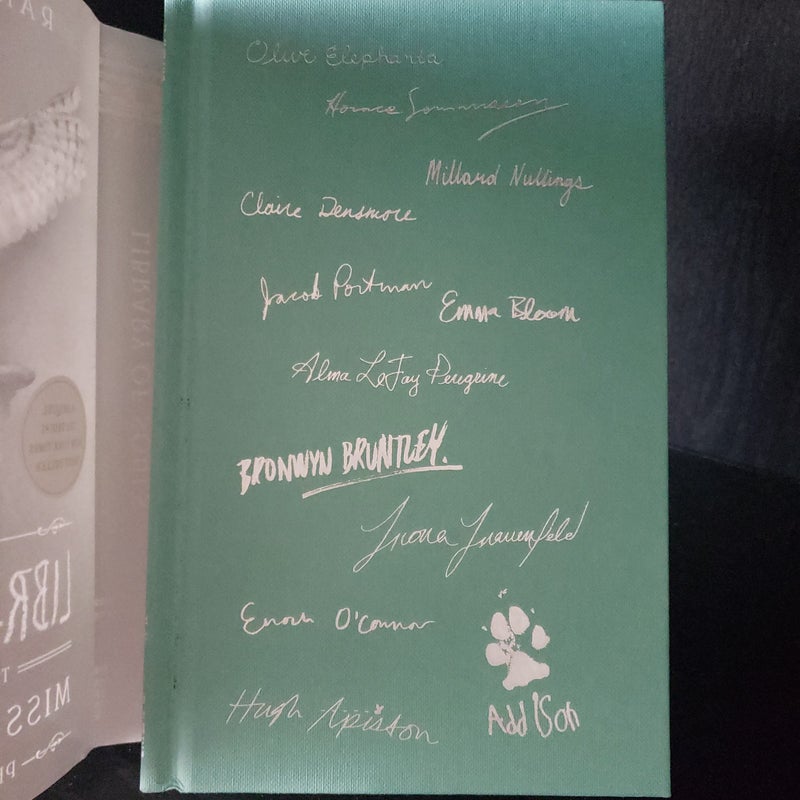 Olive Elephanta
Horace Somnusson
Millard Nullings
Claire Densmore
Jacob Portman
Emma Bloom
Alma LeFay Peregrine
BRONWYN BRUNTLEY.
Fiona Frauenfeld
Enoch O'Connor
Hugh Apiston
Addison
LIBRARY OF
LIBR
MISS